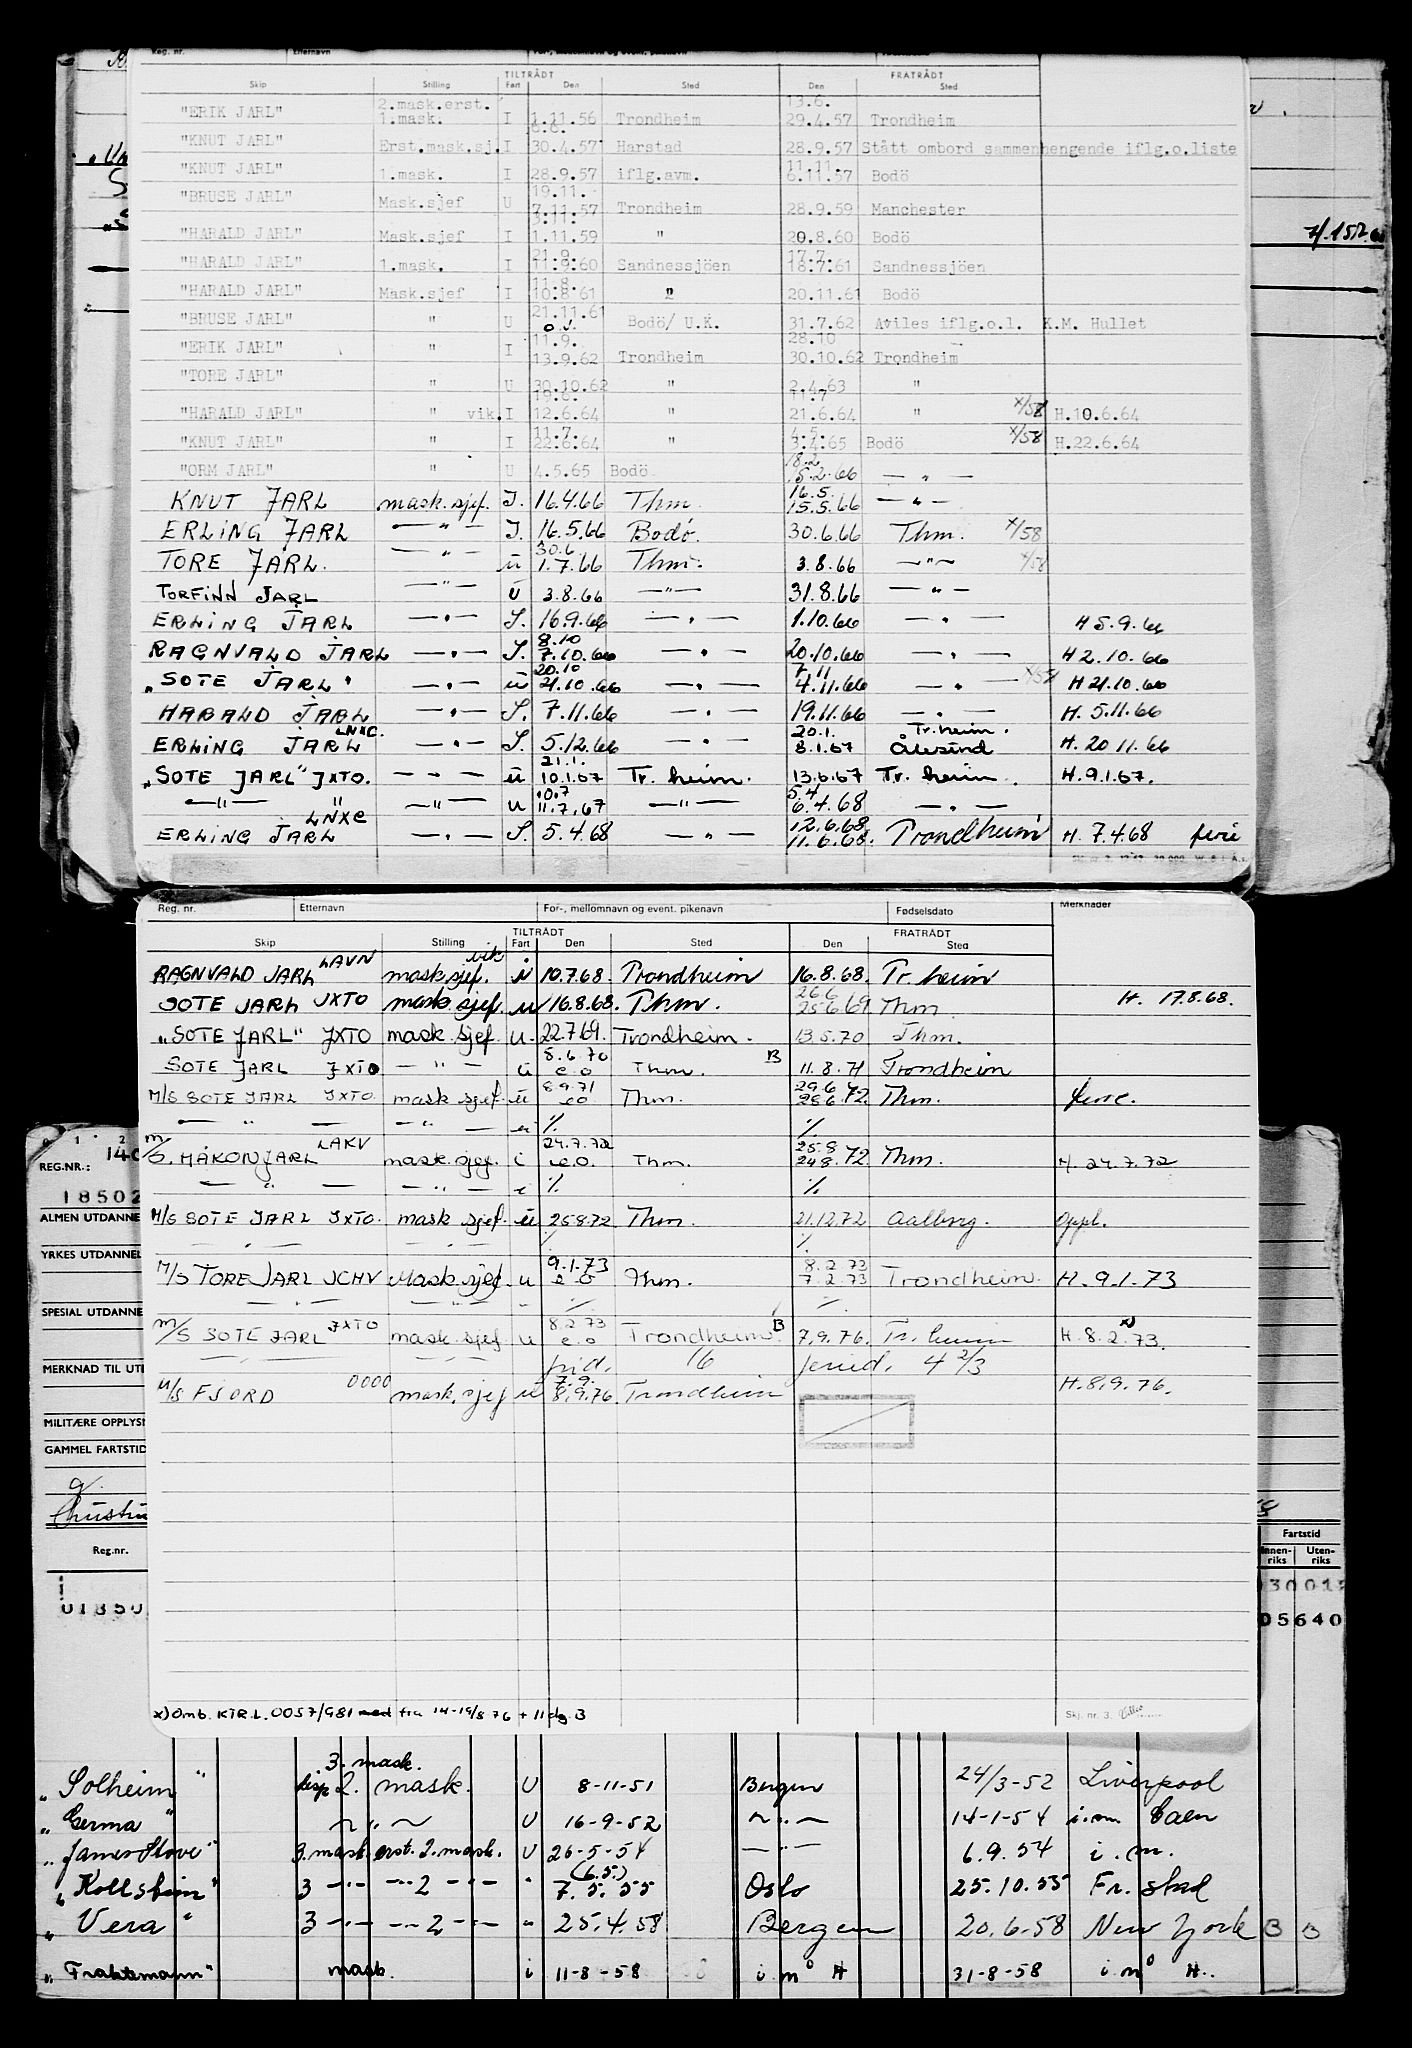 Reg. nr. Etternavn For-, mellomnavn og event. pikenavn Fødselsdato
TILTRÅDT FRATRÅDT
Skip Stilling Fart Den Sted Den Sted
"ERIK JARL" 2.mask.erst. 1.mask. I 1.11.56 Trondheim 13.6. 29.4.57 Trondheim
"KNUT JARL" Erst.mask.sj. I 6.6. 30.4.57 Harstad 28.9.57 Stått ombord sammenhengende iflg.o.liste
"KNUT JARL" 1.mask. I 28.9.57 iflg.avm. 11.11. 6.11.57 Bodö
"BRUSE JARL" Mask.sjef U 19.11. 7.11.57 Trondheim 28.9.59 Manchester
"HARALD JARL" Mask.sjef I 3.11. 1.11.59 " 20.8.60 Bodö
"HARALD JARL" 1.mask. I 21.9. 11.9.60 Sandnessjöen 17.7. 18.7.61 Sandnessjöen
"HARALD JARL" Mask.sjef I 11.8. 10.8.61 " 20.11.61 Bodö
"BRUSE JARL" " U 21.11.61 Bodö/ U.K. 31.7.62 Aviles iflg.o.l. K.M. Hullet
"ERIK JARL" " I 11.9. 13.9.62 Trondheim 28.10 30.10.62 Trondheim
"TORE JARL" " U 30.10.62 " 2.4.63 "
"HARALD JARL" " vik. I 19.6. 12.6.64 " 11.7 21.6.64 " x/58 H.10.6.64
"KNUT JARL" " I 11.7. 22.6.64 " 4.5. 3.4.65 Bodö x/58 H.22.6.64
"ORM JARL" " U 4.5.65 Bodö 18.2 15.2.66 — " —
KNUT JARL mask.sjef. I. 16.4.66 Thm. 16.5. 15.5.66 — " —
ERLING JARL — " — I. 16.5.66 Bodö. 30.6.66 Thm. x/58
TORE JARL. — " — u 30.6 1.7.66 Thm. 3.8.66 — " — x/58
TORFINN JARL — " — U 3.8.66 — " — 31.8.66 — " —
ERLING JARL — " — I. 16.9.66 — " — 1.10.66 — " — H 5.9.66
RAGNVALD JARL — " — I. 8.10 7.10.66 — " — 20.10.66 — " — H 2.10.66
"SOTE JARL" — " — u 20.10 21.10.66 — " — 7.11 4.11.66 — " — H 21.10.66
HARALD JARL — " — I. 7.11.66 — " — 19.11.66 — " — H. 5.11.66
ERLING JARL LNXC. — " — I. 5.12.66 — " — 20.1. 8.1.67 Tr.heim. Ålesund H. 20 11.66
"SOTE JARL" JXTO. — " — u 21.1. 10.1.67 Tr. heim. 13.6.67 Tr. heim. H.9.1.67.
— " — " — " — u 10.7 11.7.67 — " — 5.4 6.4.68 — " —
ERLING JARL LNXC — " — I. 5.4.68 — " — 12.6.68 11.6.68. Trondheim H. 7.4.68 ferie
Reg. nr. Etternavn For-, mellomnavn og event. pikenavn Fødselsdato Merknader
TILTRÅDT FRATRÅDT
Skip Stilling Fart Den Sted Den Sted
RAGNVALD JARL LAVN mask.sjef. vik i 10.7.68. Trondheim 16.8.68. Tr. heim
SOTE JARL JXTO mask.sjef. u 16.8.68. Thm. 26.6 25.6.69 Thm. H. 17.8.68.
"SOTE JARL" JXTO mask.sjef u. 22.7.69. Trondheim. 13.5.70 Thm.
SOTE JARL JXTO — " — u 8.6.70 e.o Thm. B 11.8.71 Trondheim
M/S SOTE JARL JXTO mask sjef. u 8.9.71 e.o Thm. 29.6 28.6.72. Thm. ferie.
— " — — " — u ./. ./.
M/S. HÅKON JARL LAKV mask.sjef. i 24.7.72 e.o. Thm. 25.8 24.8.72 Thm. H. 24.7.72
— " — — " — i ./. ./.
M/S SOTE JARL JXTO. mask sjef. u 25.8.72 Thm. 21.12.72 Aalborg. Oppl.
— " — — " — ./. ./.
M/S TORE JARL JCHV Mask.sjef. u 9.1.73 e.o Thm. 8.2.73 7.2.73 Trondheim. H. 9.1.73
— " — — " — " ./. ./.
M/S SOTE JARL JXTO mask.sjef u 8.2.73 e.o Trondheim B 7.9.76. Tr. heim H. 8.2.73. x)
— " — — " — 16 4 2/3
M/S FJORD 0000 mask.sjef u 7.9. 8.9.76. Trondheim H. 8.9.76.
x) Omb. KTR.L. 0057/981 med fra 14-19/8 76 + 11 dg B Skj. nr. 3.
REG.NR.: 140
18502
ALMEN UTDANNE
YRKES UTDANNEL
SPESIAL UTDANNE
MERKNAD TIL UTE
MILITÆRE OPPLYSN
GAMMEL FARTSTID
Reg.nr. Fartstid
Innen-riks Uten-riks
30012
01850 05640
H.15
"Solheim" 3. mask. 2. mask. U 8-11-51 Bergen 24/3-52 Liverpool
"Germa" ~ " ~ U 16-9-52 ~ " — 14-1-54 i.m Caen
"James Stove" 3.mask.erst.2.mask. U 26-5-54 — " — 6.9.54 i.m.
"Kollstein" 3 — " — — " — 2 — " — " (6.5.) 7.5.55 Oslo 25.10.55 Fr. stad
"Vera" 3 — " — — " — 2 — " — " 25.4.58 Bergen 20.6.58 New York B B
"Fraktemann" mask. i 11-8-58 i.m° H 31-8-58 i.m° H.